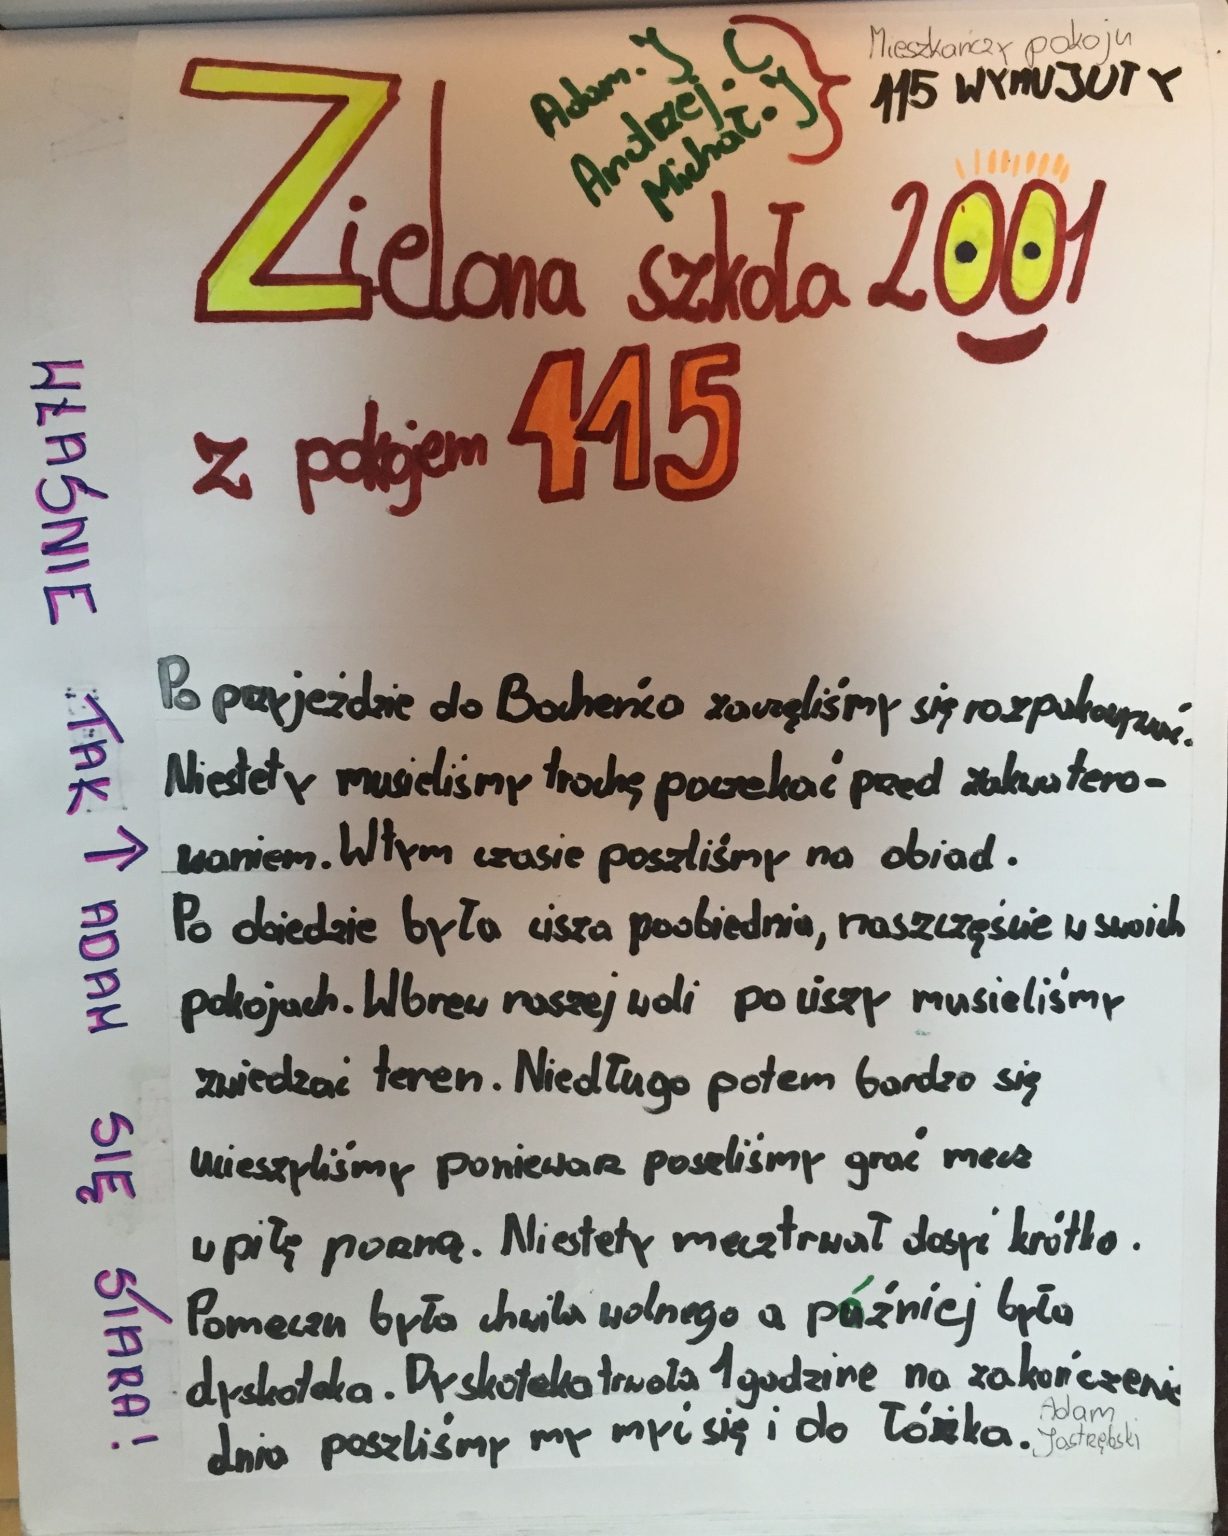 Adam. J
Andrzej. C
Michał. J
Mieszkańczy pokoju
115 WYMUJUTY
Zielona szkoła 2001
z pokojem 115
WŁAŚNIE TAK ↑ ADAM SIĘ SIARA!
Po przyjeździe do Bocheńca zaczęliśmy się rozpakowywać.
Niestety musieliśmy trochę poczekać przed zakwatero-
waniem. Wtym czasie poszliśmy na obiad.
Po obiedzie była cisza poobiednia, naszczęście w swoich
pokojach. Wbrew naszej woli po ciszy musieliśmy
zwiedzać teren. Niedługo potem bardzo się
ucieszyliśmy poniewarz poszliśmy grać mecz
w piłę nożną. Niestety mecztrwał dosyć krótko.
Pomeczu było chwila wolnego a później była
dyskoteka. Dyskotekatrwała 1 godzine na zakończenie
dnia poszliśmy my myć się i do łóżka.
Adam
Jastrzębski